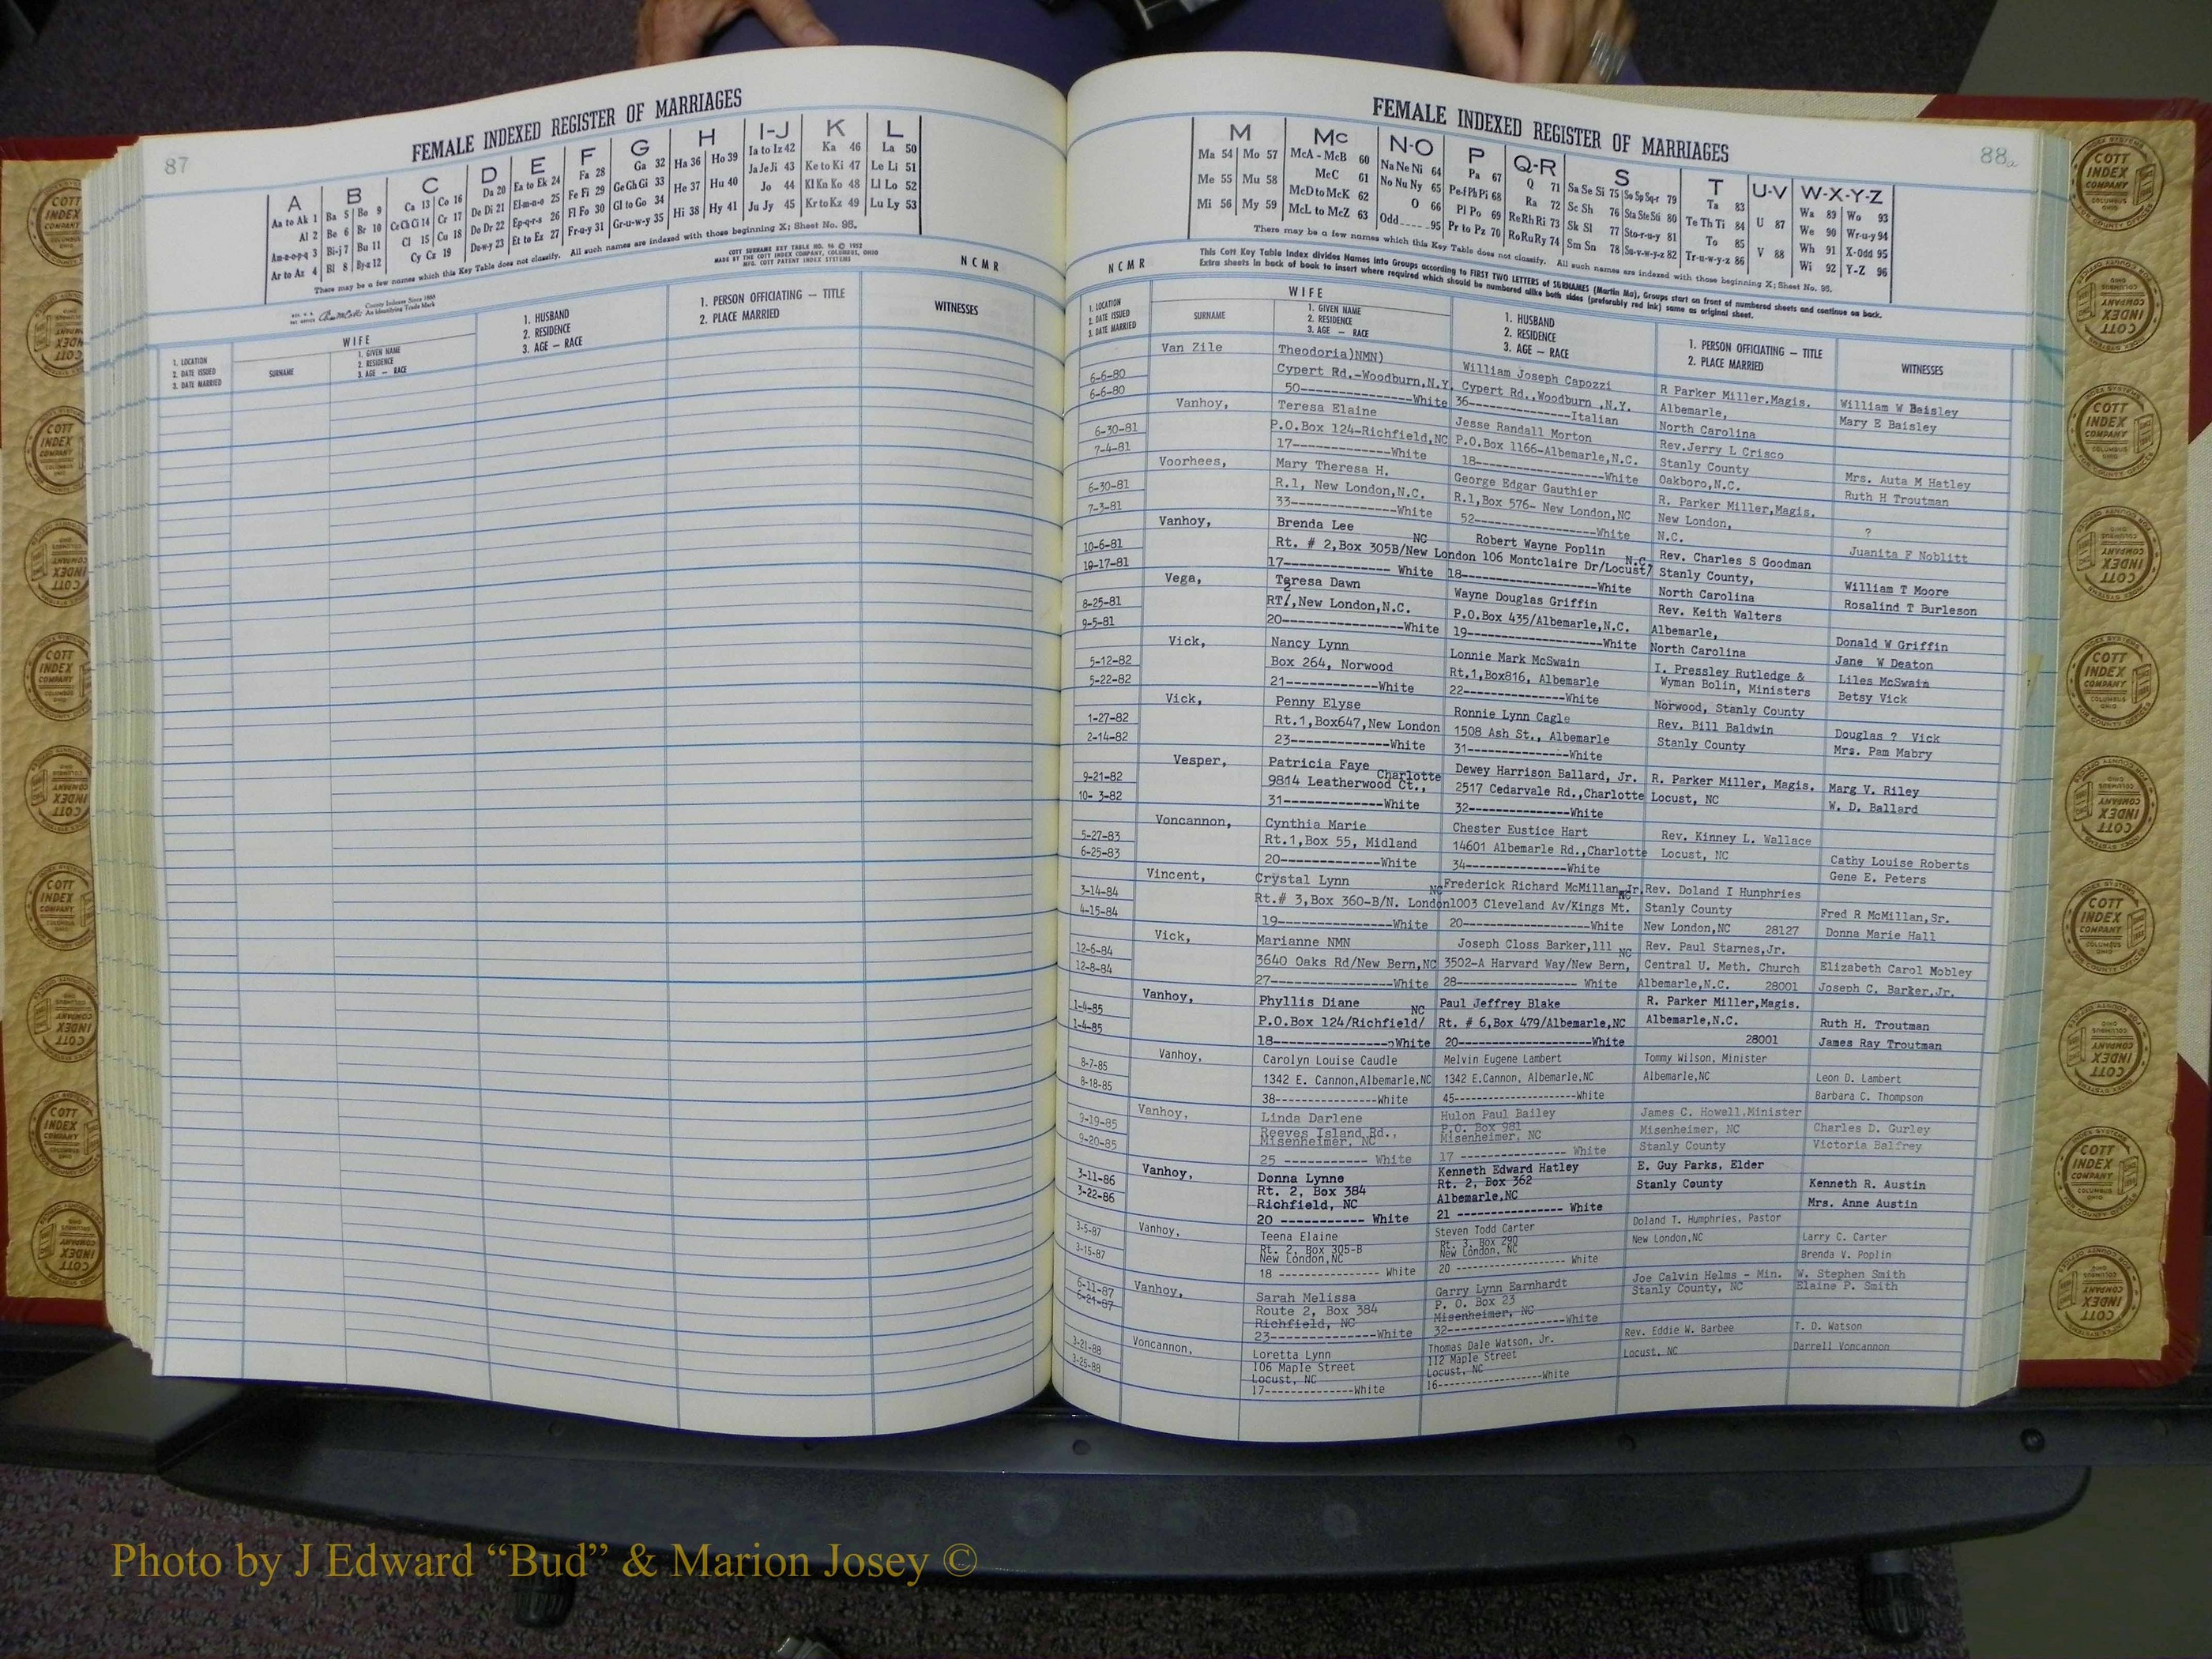 87
FEMALE INDEXED REGISTER OF MARRIAGES
A B C D E F G H I-J K L
Aa to Ak 1 Ba 5 Bo 9 Ca 13 Co 16 Da 20 Ea to Ek 24 Fa 28 Ga 32 Ha 36 Ho 39 Ia to Iz 42 Ka 46 La 50
Al 2 Be 6 Br 10 Ce Ch Ci 14 Cr 17 De Di 21 El-m-n-o 25 Fe Fi 29 Ge Gh Gi 33 He 37 Hu 40 Ja Je Ji 43 Ke to Ki 47 Le Li 51
Am-n-o-p-q 3 Bi-j 7 Bu 11 Cl 15 Cu 18 Do Dr 22 Ep-q-r-s 26 Fl Fo 30 Gl to Go 34 Hi 38 Hy 41 Jo 44 Kl Kn Ko 48 Ll Lo 52
Ar to Az 4 Bl 8 By-z 12 Cy Cz 19 Du-w-y 23 Et to Ez 27 Fr-u-y 31 Gr-u-w-y 35 Ju Jy 45 Kr to Kz 49 Lu Ly 53
There may be a few names which this Key Table does not classify. All such names are indexed with those beginning X; Sheet No. 95.
COTT SURNAME KEY TABLE NO. 96 © 1952
MADE BY THE COTT INDEX COMPANY, COLUMBUS, OHIO
MFG. COTT PATENT INDEX SYSTEMS
N C M R
County Indexes Since 1888
An Identifying Trade Mark
1. LOCATION
2. DATE ISSUED
3. DATE MARRIED
WIFE
SURNAME
1. GIVEN NAME
2. RESIDENCE
3. AGE — RACE
1. HUSBAND
2. RESIDENCE
3. AGE — RACE
1. PERSON OFFICIATING — TITLE
2. PLACE MARRIED
WITNESSES
FEMALE INDEXED REGISTER OF MARRIAGES
88a
M Mc N-O P Q-R S T U-V W-X-Y-Z
Ma 54 Mo 57 McA - McB 60 Na Ne Ni 64 Pa 67 Q 71 Sa Se Si 75 So Sp Sq-r 79 Ta 83 U 87 Wa 89 Wo 93
Me 55 Mu 58 McC 61 No Nu Ny 65 Pe-f Ph Pi 68 Ra 72 Sc Sh 76 Sta Ste Sti 80 Te Th Ti 84 We 90 Wr-u-y 94
Mi 56 My 59 McD to McK 62 O 66 Pl Po 69 Re Rh Ri 73 Sk Sl 77 Sto-r-u-y 81 To 85 V 88 Wh 91 X-Odd 95
McL to McZ 63 Odd 95 Pr to Pz 70 Ro Ru Ry 74 Sm Sn 78 Su-v-w-y-z 82 Tr-u-w-y-z 86 Wi 92 Y-Z 96
There may be a few names which this Key Table does not classify. All such names are indexed with those beginning X; Sheet No. 95.
This Cott Key Table Index divides Names into Groups according to FIRST TWO LETTERS of SURNAMES (Martin Ma), Groups start on front of numbered sheets and continue on back.
Extra sheets in back of book to insert where required which should be numbered alike both sides (preferably red ink) same as original sheet.
N C M R
1. LOCATION
2. DATE ISSUED
3. DATE MARRIED
WIFE
SURNAME
1. GIVEN NAME
2. RESIDENCE
3. AGE — RACE
1. HUSBAND
2. RESIDENCE
3. AGE — RACE
1. PERSON OFFICIATING — TITLE
2. PLACE MARRIED
WITNESSES
Van Zile Theodoria)NMN) William Joseph Capozzi R Parker Miller.Magis. William W Baisley
6-6-80 Cypert Rd.-Woodburn,N.Y. Cypert Rd.,Woodburn ,N.Y. Albemarle, Mary E Baisley
6-6-80 50--------------White 36--------------Italian North Carolina
Vanhoy, Teresa Elaine Jesse Randall Morton Rev.Jerry L Crisco
6-30-81 P.O.Box 124-Richfield,NC P.O.Box 1166-Albemarle,N.C. Stanly County Mrs. Auta M Hatley
7-4-81 17--------------White 18--------------White Oakboro,N.C. Ruth H Troutman
Voorhees, Mary Theresa H. George Edgar Gauthier R. Parker Miller,Magis.
6-30-81 R.1, New London,N.C. R.1,Box 576- New London,NC New London, ?
7-3-81 33--------------White 52--------------White N.C. Juanita F Noblitt
Vanhoy, Brenda Lee Robert Wayne Poplin Rev. Charles S Goodman
10-6-81 Rt. # 2,Box 305B/New London NC 106 Montclaire Dr/Locust, N.C. Stanly County, William T Moore
10-17-81 17-------------- White 18--------------White North Carolina Rosalind T Burleson
Vega, Teresa Dawn Wayne Douglas Griffin Rev. Keith Walters
8-25-81 RT2,New London,N.C. P.O.Box 435/Albemarle,N.C. Albemarle, Donald W Griffin
9-5-81 20--------------White 19--------------White North Carolina Jane W Deaton
Vick, Nancy Lynn Lonnie Mark McSwain I. Pressley Rutledge & Liles McSwain
5-12-82 Box 264, Norwood Rt.1,Box816, Albemarle Wyman Bolin, Ministers Betsy Vick
5-22-82 21------------White 22------------White Norwood, Stanly County
Vick, Penny Elyse Ronnie Lynn Cagle Rev. Bill Baldwin Douglas ? Vick
1-27-82 Rt.1,Box647,New London 1508 Ash St., Albemarle Stanly County Mrs. Pam Mabry
2-14-82 23-------------White 31-------------White
Vesper, Patricia Faye Dewey Harrison Ballard, Jr. R. Parker Miller, Magis. Marg V. Riley
9-21-82 9814 Leatherwood Ct., Charlotte 2517 Cedarvale Rd.,Charlotte Locust, NC W. D. Ballard
10- 3-82 31-------------White 32-------------White
Voncannon, Cynthia Marie Chester Eustice Hart Rev. Kinney L. Wallace
5-27-83 Rt.1,Box 55, Midland 14601 Albemarle Rd.,Charlotte Locust, NC Cathy Louise Roberts
6-25-83 20-------------White 34-------------White Gene E. Peters
Vincent, Crystal Lynn Frederick Richard McMillan,Jr. Rev. Doland I Hunphries
3-14-84 Rt.# 3,Box 360-B/N. London NC 1003 Cleveland Av/Kings Mt. NC Stanly County Fred R McMillan,Sr.
4-15-84 19--------------White 20--------------White New London,NC 28127 Donna Marie Hall
Vick, Marianne NMN Joseph Closs Barker,111 Rev. Paul Starnes,Jr.
12-6-84 3640 Oaks Rd/New Bern,NC 3502-A Harvard Way/New Bern, NC Central U. Meth. Church Elizabeth Carol Mobley
12-8-84 27--------------White 28-------------- White Albemarle,N.C. 28001 Joseph C. Barker,Jr.
Vanhoy, Phyllis Diane Paul Jeffrey Blake R. Parker Miller,Magis.
1-4-85 P.O.Box 124/Richfield/ NC Rt. # 6,Box 479/Albemarle,NC Albemarle,N.C. Ruth H. Troutman
1-4-85 18--------------White 20--------------White 28001 James Ray Troutman
Vanhoy, Carolyn Louise Caudle Melvin Eugene Lambert Tommy Wilson, Minister
8-7-85 1342 E. Cannon,Albemarle,NC 1342 E.Cannon, Albemarle,NC Albemarle,NC Leon D. Lambert
8-18-85 38--------------White 45--------------White Barbara C. Thompson
Vanhoy, Linda Darlene Hulon Paul Bailey James C. Howell,Minister
9-19-85 Reeves Island Rd., P.O. Box 981 Misenheimer, NC Charles D. Gurley
9-20-85 Misenheimer, NC Misenheimer, NC Stanly County Victoria Balfrey
25 ----------- White 17 -------------- White
Vanhoy, Donna Lynne Kenneth Edward Hatley E. Guy Parks, Elder
3-11-86 Rt. 2, Box 384 Rt. 2, Box 362 Stanly County Kenneth R. Austin
3-22-86 Richfield, NC Albemarle,NC Mrs. Anne Austin
20 ----------- White 21 -------------- White
Vanhoy, Teena Elaine Steven Todd Carter Doland T. Humphries, Pastor
3-5-87 Rt. 2, Box 305-B Rt. 3, Box 290 New London,NC Larry C. Carter
3-15-87 New London,NC New London, NC Brenda V. Poplin
18 -------------- White 20 -------------- White
Vanhoy, Sarah Melissa Garry Lynn Earnhardt Joe Calvin Helms - Min. W. Stephen Smith
6-11-87 Route 2, Box 384 P. O. Box 23 Stanly County, NC Elaine P. Smith
6-21-87 Richfield, NC Misenheimer, NC
23--------------White 32--------------White
Voncannon, Loretta Lynn Thomas Dale Watson, Jr. Rev. Eddie W. Barbee T. D. Watson
3-21-88 106 Maple Street 112 Maple Street Locust, NC Darrell Voncannon
3-25-88 Locust, NC Locust, NC
17--------------White 16--------------White
COTT INDEX COMPANY COLUMBUS OHIO
Photo by J Edward “Bud” & Marion Josey ©